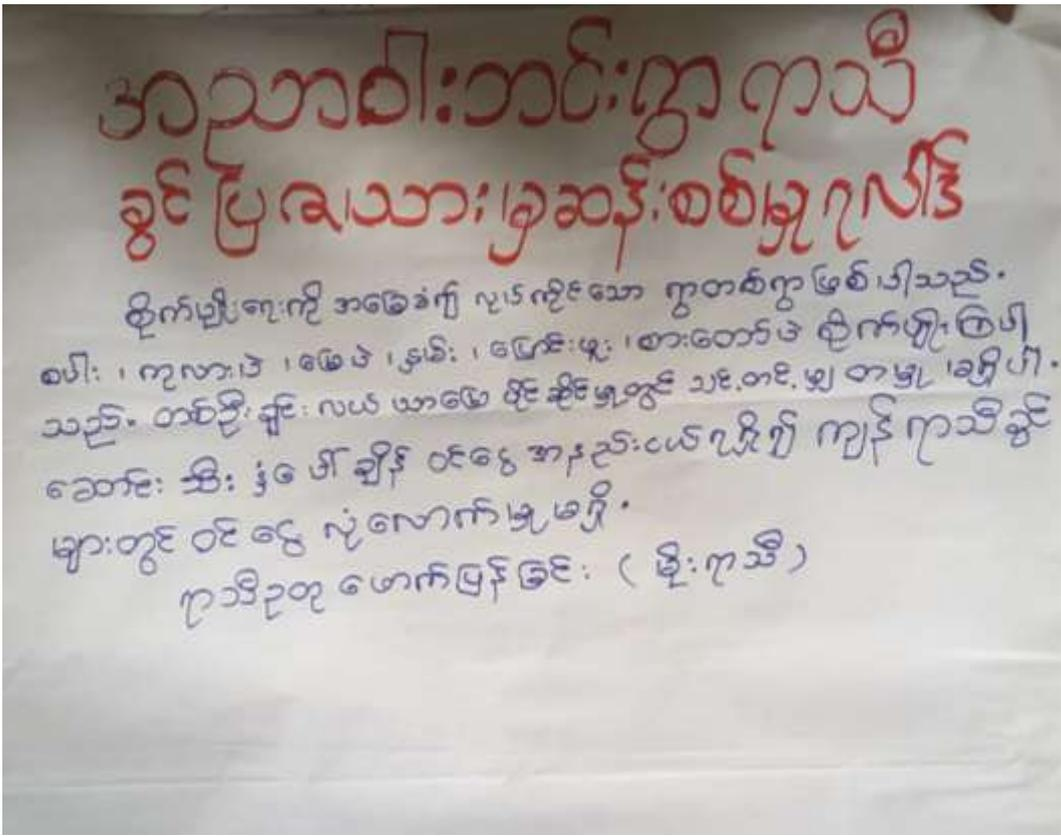 အညာဝါးဘင်းရွာ ရာသီ
ခွင် ပြဇယားမှဆန်းစစ်မှုရလဒ်
စိုက်ပျိုးရေးကို အခြေခံ၍ လုပ်ကိုင်သော ရွာတစ်ရွာ ဖြစ်ပါသည်။
စပါး ၊ ကုလားပဲ ၊ မြေပဲ ၊ နှမ်း ၊ ပြောင်းဖူး ၊ စားတော်ပဲ စိုက်ပျိုးကြပါ
သည်။ တစ်ဦးချင်း လယ် ယာမြေ ပိုင်ဆိုင်မှုတွင် သင့်တင့်မျှ တမှု မရှိပါ။
ဆောင်းသီးနှံပေါ်ချိန် ဝင်ငွေ အနည်းငယ်ရရှိ၍ ကျန်ရာသီခွင်
များတွင် ဝင်ငွေ လုံလောက်မှုမရှိ။
ရာသီဥတု ဖောက်ပြန်ခြင်း ( မိုးရာသီ )